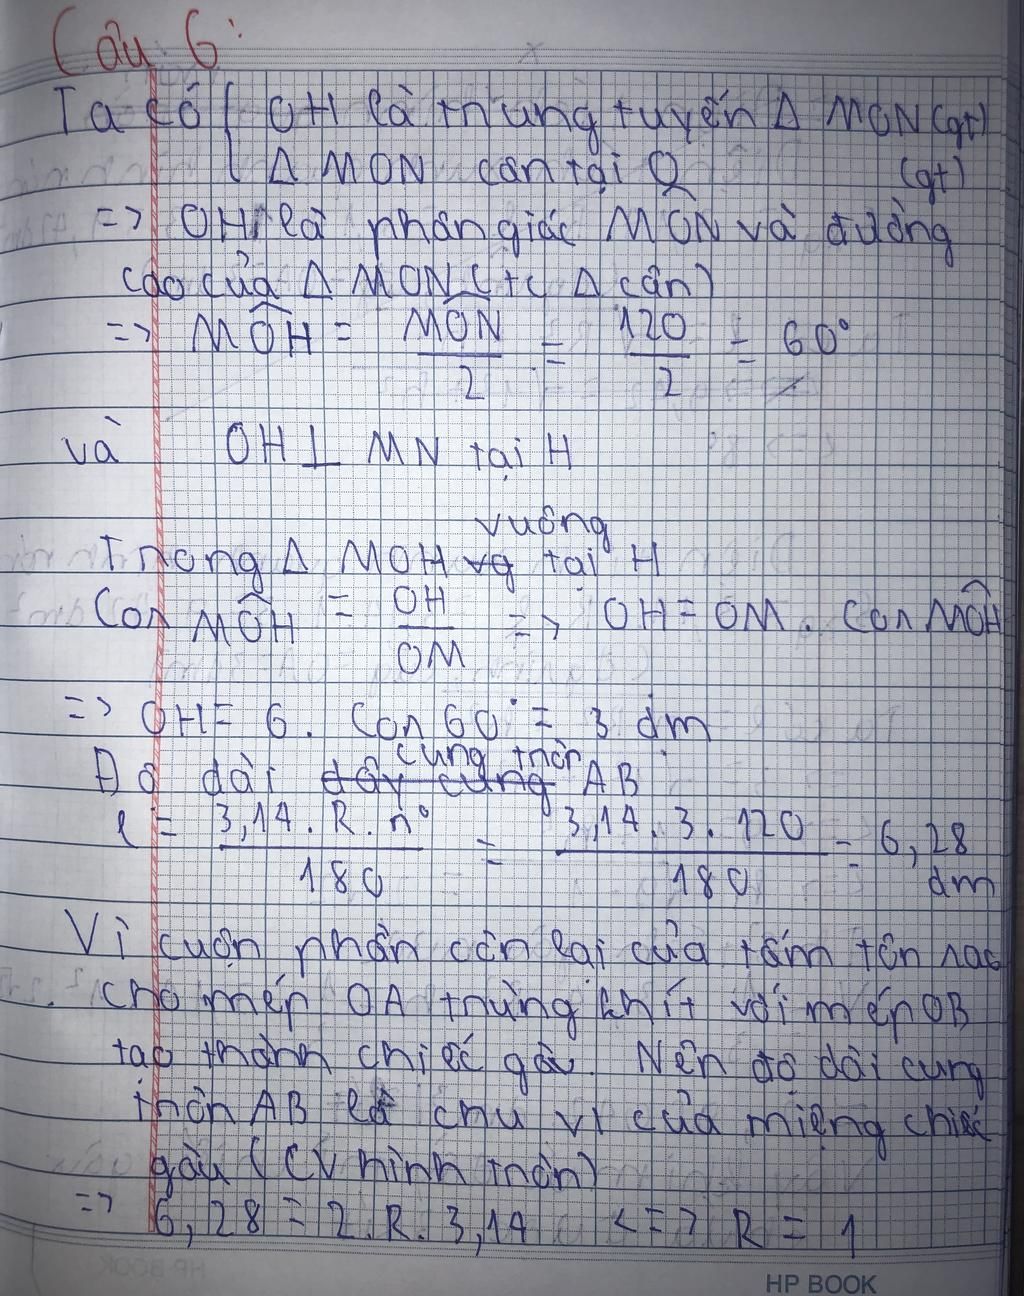 Câu 6:
Ta có { OH là trung tuyến Δ MON (gt)
Δ MON cân tại O (gt)
=> OH là phân giác MÔN và đường
cao của Δ MON (t/c Δ cân)
=> MÔH = MÔN / 2 = 120 / 2 = 60°
và OH ⊥ MN tại H
vuông
Trong Δ MOH vg tại H
Cos MÔH = OH / OM => OH = OM . Cos MÔH
=> OH = 6 . Cos 60° = 3 dm
cung tròn
Độ dài dây cung AB
l = 3,14 . R . n° / 180 = 3,14 . 3 . 120 / 180 = 6,28 dm
Vì cuộn phần còn lại của tấm tôn sao
cho mép OA trùng khít với mép OB
tạo thành chiếc gàu. Nên độ dài cung
tròn AB là chu vi của miệng chiếc
gàu (CV hình tròn)
=> 6,28 = 2 . R . 3,14 <=> R = 1
HP BOOK